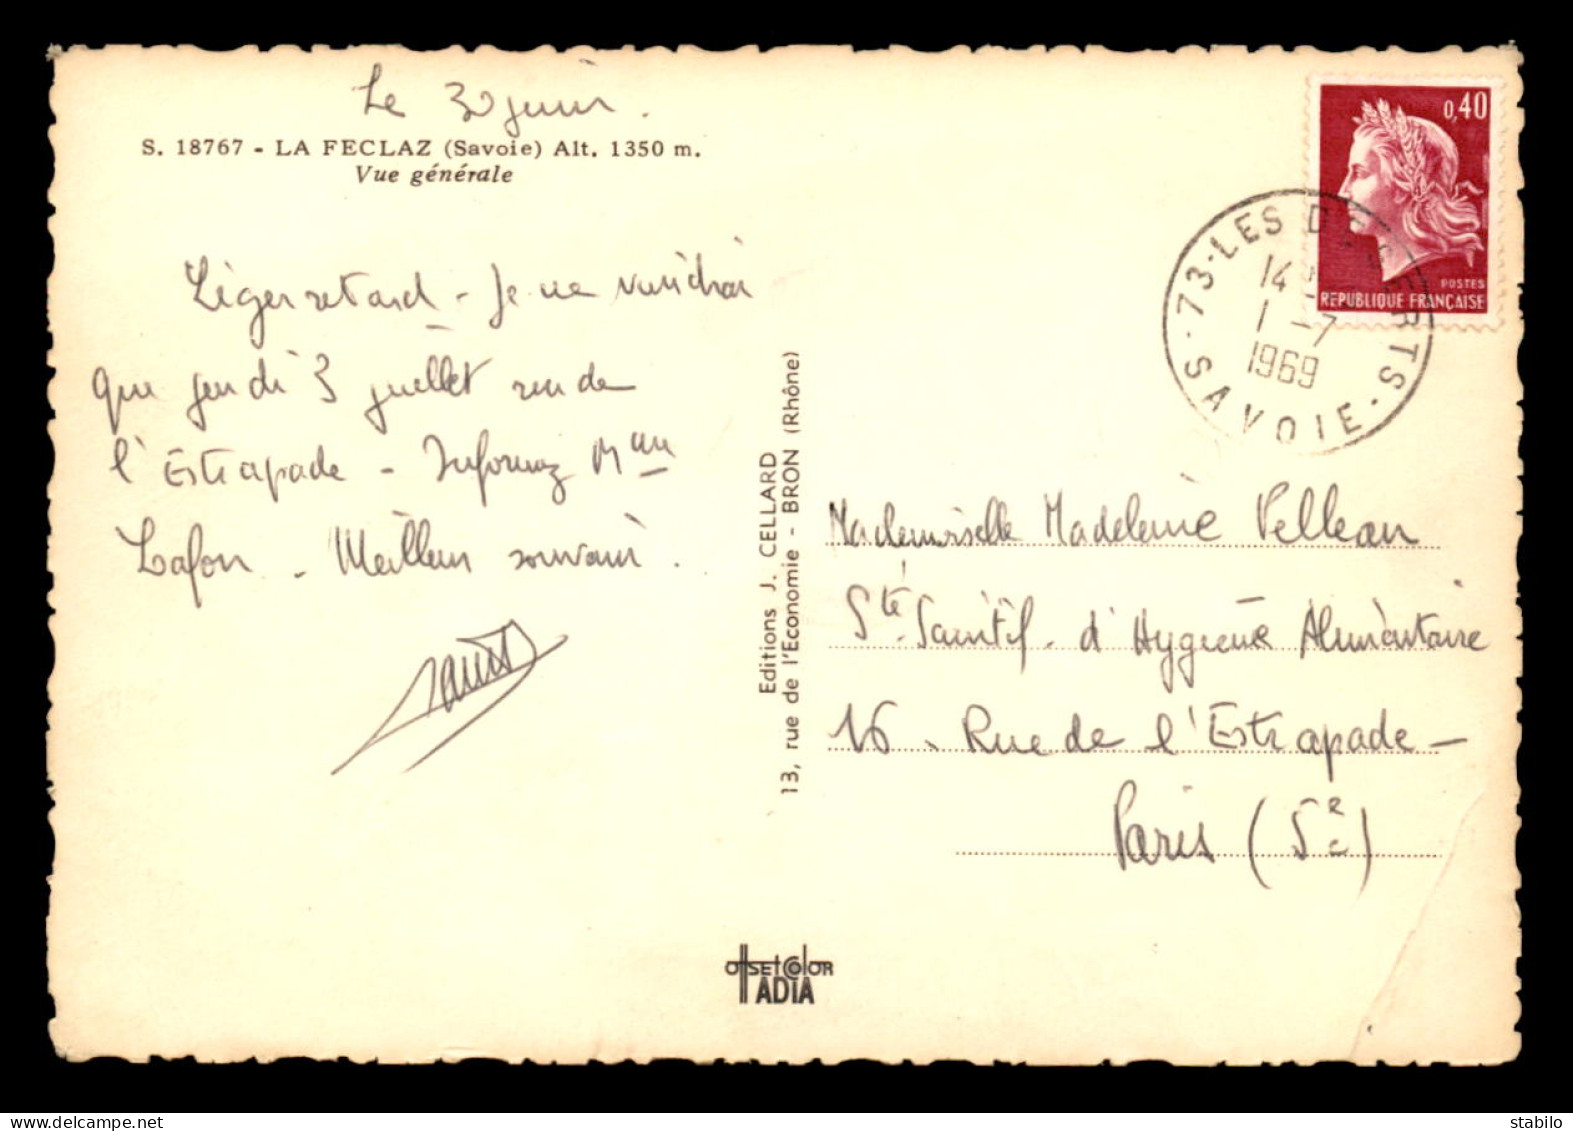 Le 30 juin.
S. 18767 - LA FECLAZ (Savoie) Alt. 1350 m.
Vue générale
Léger retard - Je ne viendrai
que jeudi 3 juillet rue de
l'Estrapade - Informez Mme
Lafon. Meilleur souvenir.
Editions J. CELLARD
13, rue de l'Economie - BRON (Rhône)
0,40
POSTES
REPUBLIQUE FRANÇAISE
73-LES DESERTS
14
1-7
1969
SAVOIE
Mademoiselle Madeleine Pelleau
Sté Scientif. d'Hygiène Alimentaire
16, Rue de l'Estrapade -
Paris (5e)
OFFSET COLOR
ADIA
stabilo
www.delcampe.net